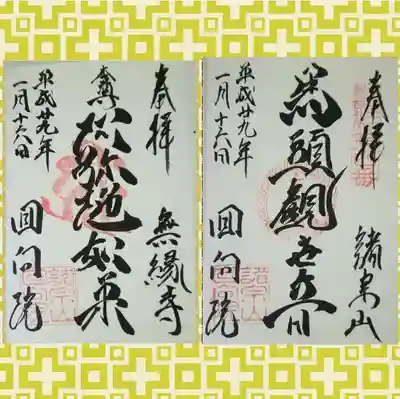 奉拝
諸宗山
馬頭観世音
平成廿九年
一月十六日
回向院
奉拝
無縁寺
本尊
阿弥陀如来
平成廿九年
一月十六日
回向院